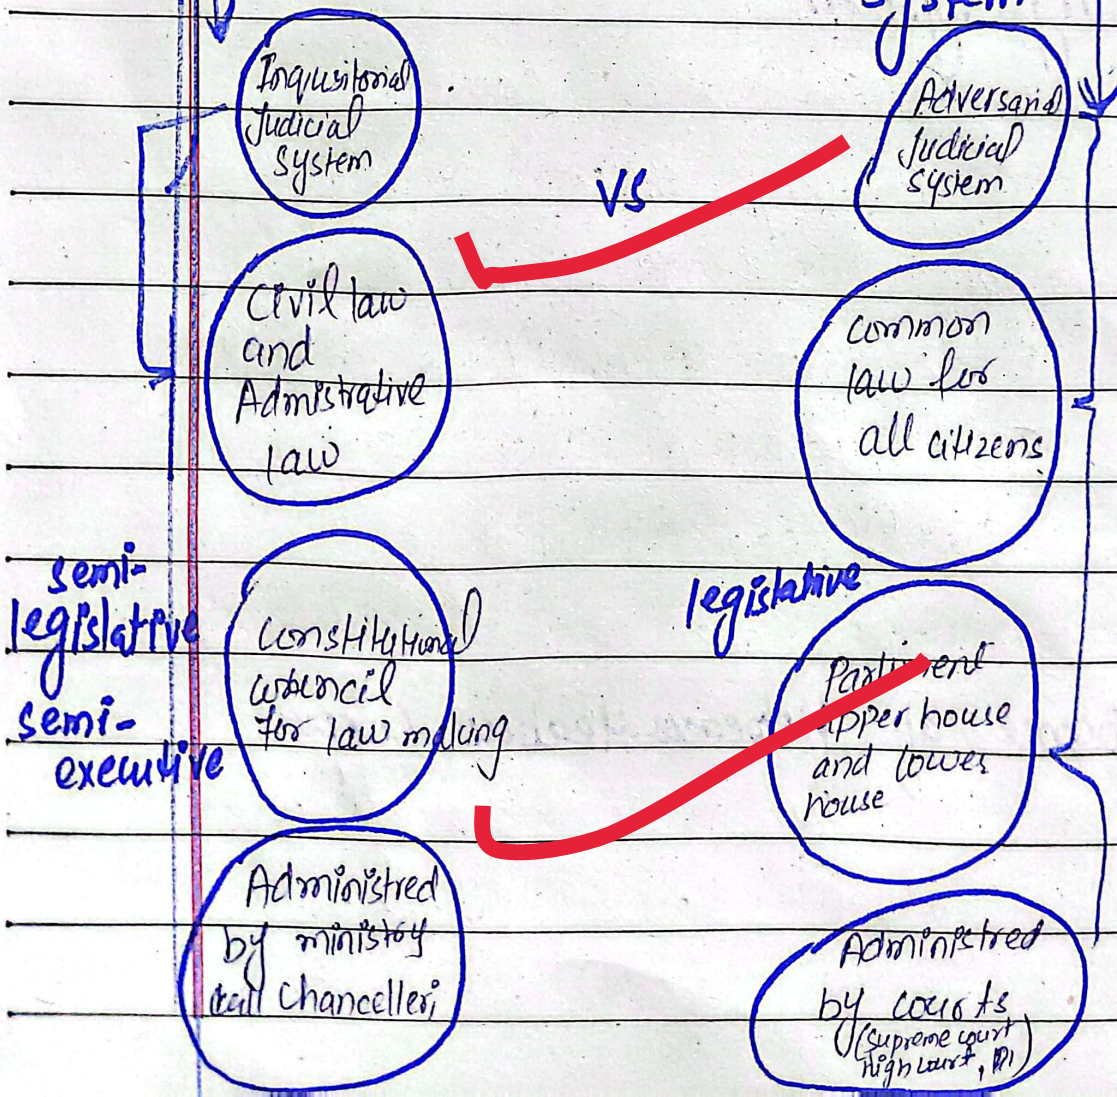 system
Inqusitorial
Judicial
system
VS
Adversarial
Judicial
system
Civil law
and
Admistrative
law
common
law for
all citizens
semi-
legislative
semi-
executive
constitutional
council
for law making
legislative
Parliment
upper house
and lower
house
Administred
by ministry
call Chancelleri
Administred
by courts
(supreme court
high court,